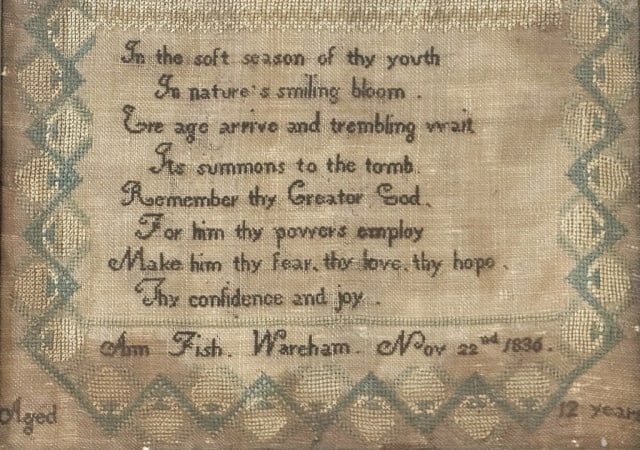 In the soft season of thy youth
In nature's smiling bloom .
Ere age arrive and trembling wait
Its summons to the tomb.
Remember thy Creator God.
For him thy powers employ
Make him thy fear, thy love, thy hope .
Thy confidence and joy .
Ann Fish. Wareham. Nov 22nd 1836.
Aged 12 years